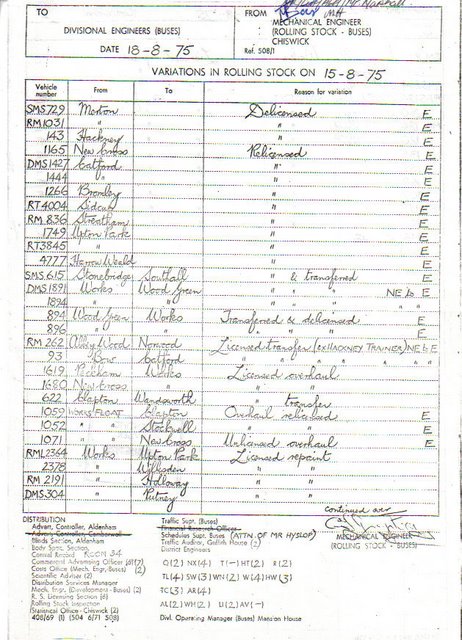 TO
DIVISIONAL ENGINEERS (BUSES)
DATE 18-8-75
FROM
MECHANICAL ENGINEER
(ROLLING STOCK - BUSES)
CHISWICK
Ref. 508/1
VARIATIONS IN ROLLING STOCK ON 15-8-75
Vehicle number From To Reason for variation
SMS 729 Merton Delicensed E
RM 1031 " " E
143 Hackney " E
1165 New Cross Relicensed E
DMS 1427 Catford " E
1444 " " E
1266 Bromley " E
RT 4004 Sidcup " E
RM 836 Streatham " E
1749 Upton Park " E
RT 3845 " " E
4777 Harrow Weald " E
SMS 615 Stonebridge Southall " & transferred E
DMS 1891 Works Wood Green " " NE to E
1894 " " " " " " "
894 Wood Green Works Transferred & delicensed E
896 " " " " " E
RM 262 Abbey Wood Norwood Licensed transfer (ex HACKNEY TRAINER) NE to E
93 Bow Catford " " " " " " "
1619 Peckham Works Licensed overhaul
1680 New Cross " " "
622 Clapton Wandsworth " transfer
1059 WORKS FLOAT Clapton Overhaul relicensed E
1052 " " Stockwell " " E
1071 " New Cross Unlicensed overhaul E
RML 2364 Works Upton Park Licensed repaint
2378 " Willesden " "
RM 2191 " Holloway " "
DMS 304 " Putney " "
continued over
MECHANICAL ENGINEER
(ROLLING STOCK - BUSES)
DISTRIBUTION
Advert. Controller, Aldenham
Advert. Controller, Camberwell
Bleds Section, Aldenham
Body Spns. Section,
Central Record ROOM 34
Commercial Advertising Officer
Cost Office (Mech. Engr.-Buses) (2)
Scientific Adviser (2)
Distribution Services Manager
Mech. Engr. (Development - Buses) (2)
R. S. Licensing Section (6)
Rolling Stock Inspection
Statistical Office - Chiswick (2)
408/69 (1) (504 6/71 508)
Traffic Supt. (Buses)
Financial Research Officer
Schedules Supt. (Buses) (ATTN. OF MR HYSLOP)
Traffic Auditor, Griffith House
District Engineers
Q(2) NX(4) T(-) HT(2) R(2)
TL(4) SW(3) WN(2) W(4) HW(3)
TC(3) AR(4)
AL(2) WH(2) U(2) AV(-)
Divl. Operating Manager (Buses) Mansion House